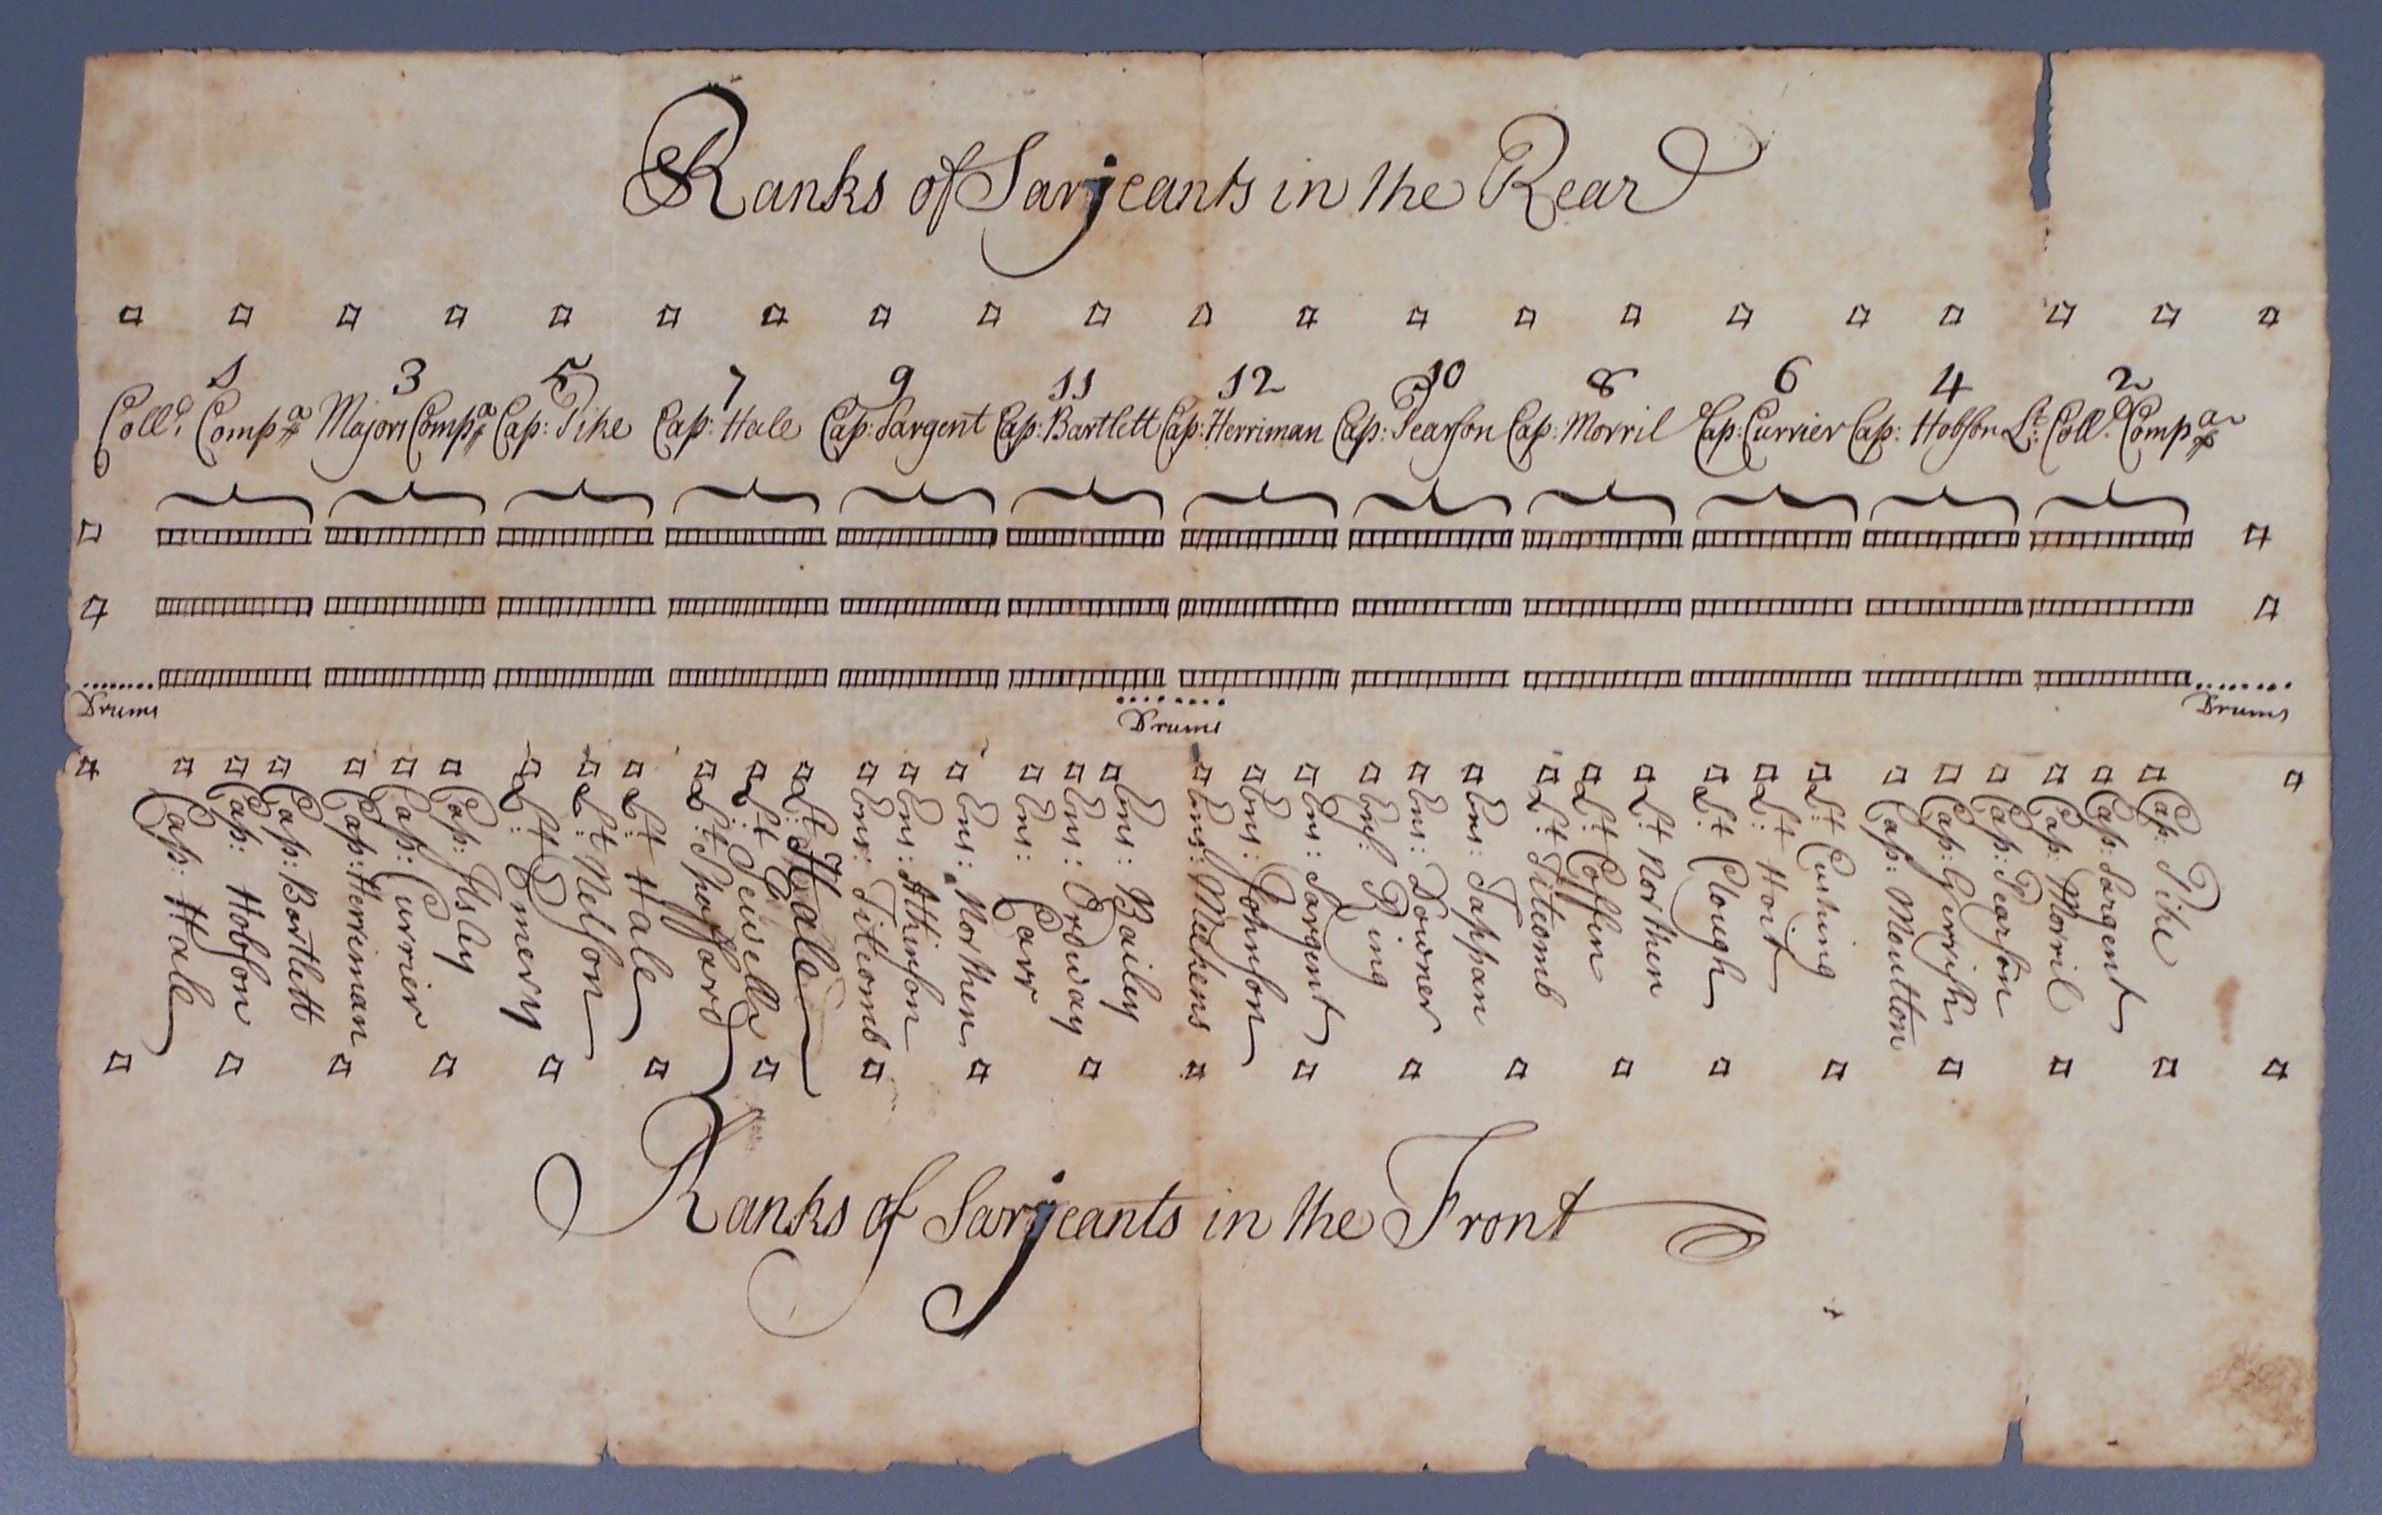 Ranks of Sarjeants in the Rear
1 3 5 7 9 11 12 10 8 6 4 2
Coll.s Compa Majors Compa Cap: Pike Cap: Hale Cap: Sargent Cap: Bartlett Cap: Herriman Cap: Pearson Cap: Morril Cap: Currier Cap: Hobson Lt. Coll.s Compa
Drums
Drums
Drums
Cap: Hale
Cap: Hobson
Cap: Bartlett
Cap: Herriman
Cap: Currier
Cap: Ilsley
Lt: Emery
Lt: Nelson
Lt: Hale
Lt: Spofford
Lt: Sewell
Lt: Hale
Ens: Titcomb
Ens: Atkinson
Ens: Northen
Ens: Carr
Ens: Ordway
Ens: Bailey
Ens: Mekens
Ens: Johnson
Ens: Sargent
Ens: Ring
Ens: Downer
Ens: Tappan
Lt: Titcomb
Lt: Coffin
Lt: Northen
Lt: Clough
Lt: Hoit
Lt: Cushing
Cap: Moulton
Cap: Gerrish
Cap: Pearson
Cap: Morril
Cap: Sargent
Cap: Pike
Ranks of Sarjeants in the Front